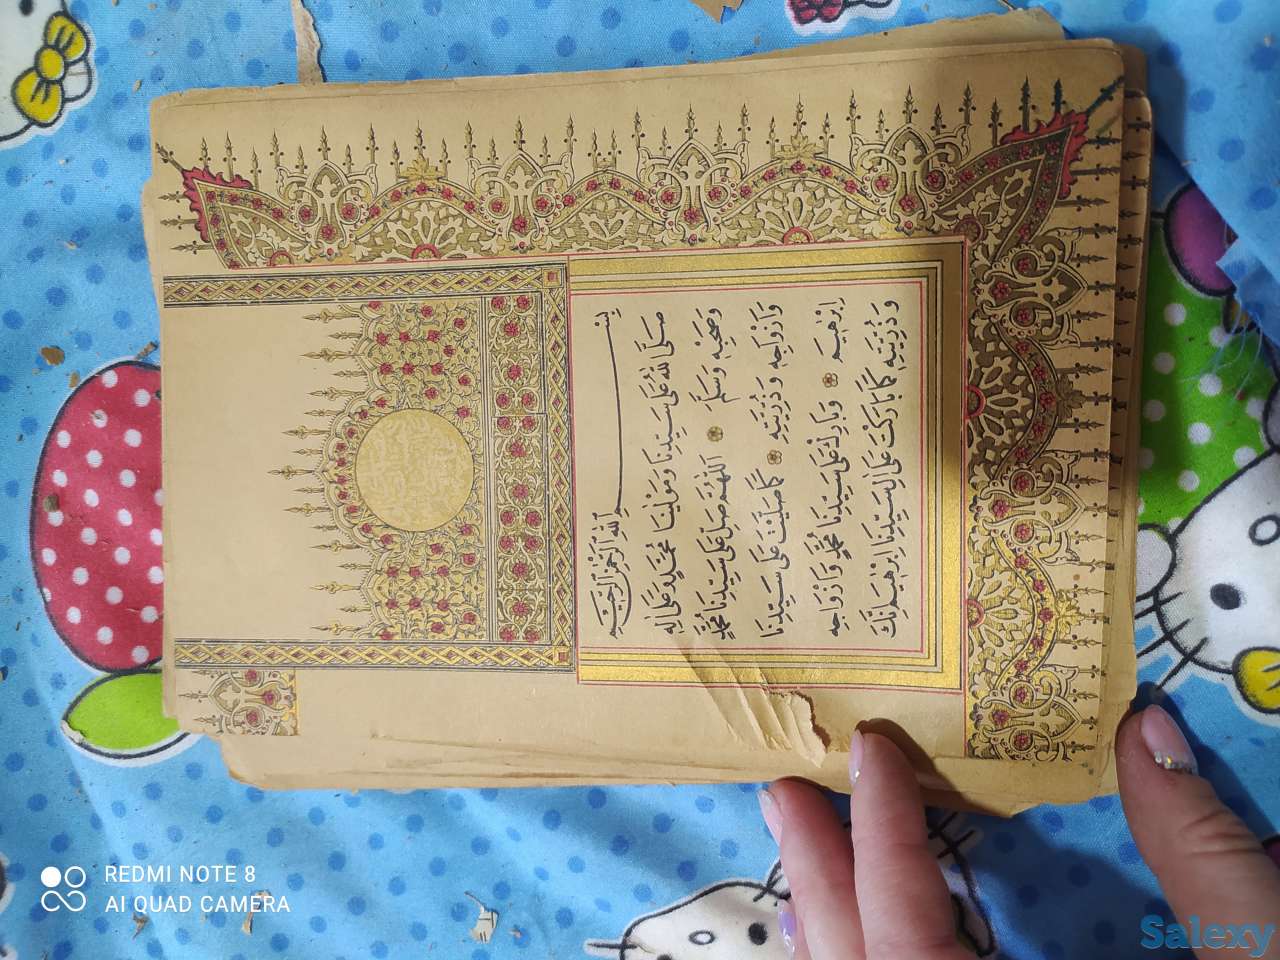 بِسْمِ اللهِ الرَّحْمٰنِ الرَّحِيمِ
صَلَّى اللهُ عَلٰى سَيِّدِنَا وَمَوْلٰينَا مُحَمَّدٍ وَعَلٰى اٰلِهِ
وَصَحْبِهِ وَسَلَّمَ اَللّٰهُمَّ صَلِّ عَلٰى سَيِّدِنَا مُحَمَّدٍ
وَاَزْوَاجِهِ وَذُرِّيَّتِهِ كَمَا صَلَّيْتَ عَلٰى سَيِّدِنَا
اِبْرٰهِيمَ وَبَارِكْ عَلٰى سَيِّدِنَا مُحَمَّدٍ وَاَزْوَاجِهِ
وَذُرِّيَّتِهِ كَمَا بَارَكْتَ عَلٰى اٰلِ سَيِّدِنَا اِبْرٰهِيمَ اِنَّكَ
REDMI NOTE 8
AI QUAD CAMERA
Salexy